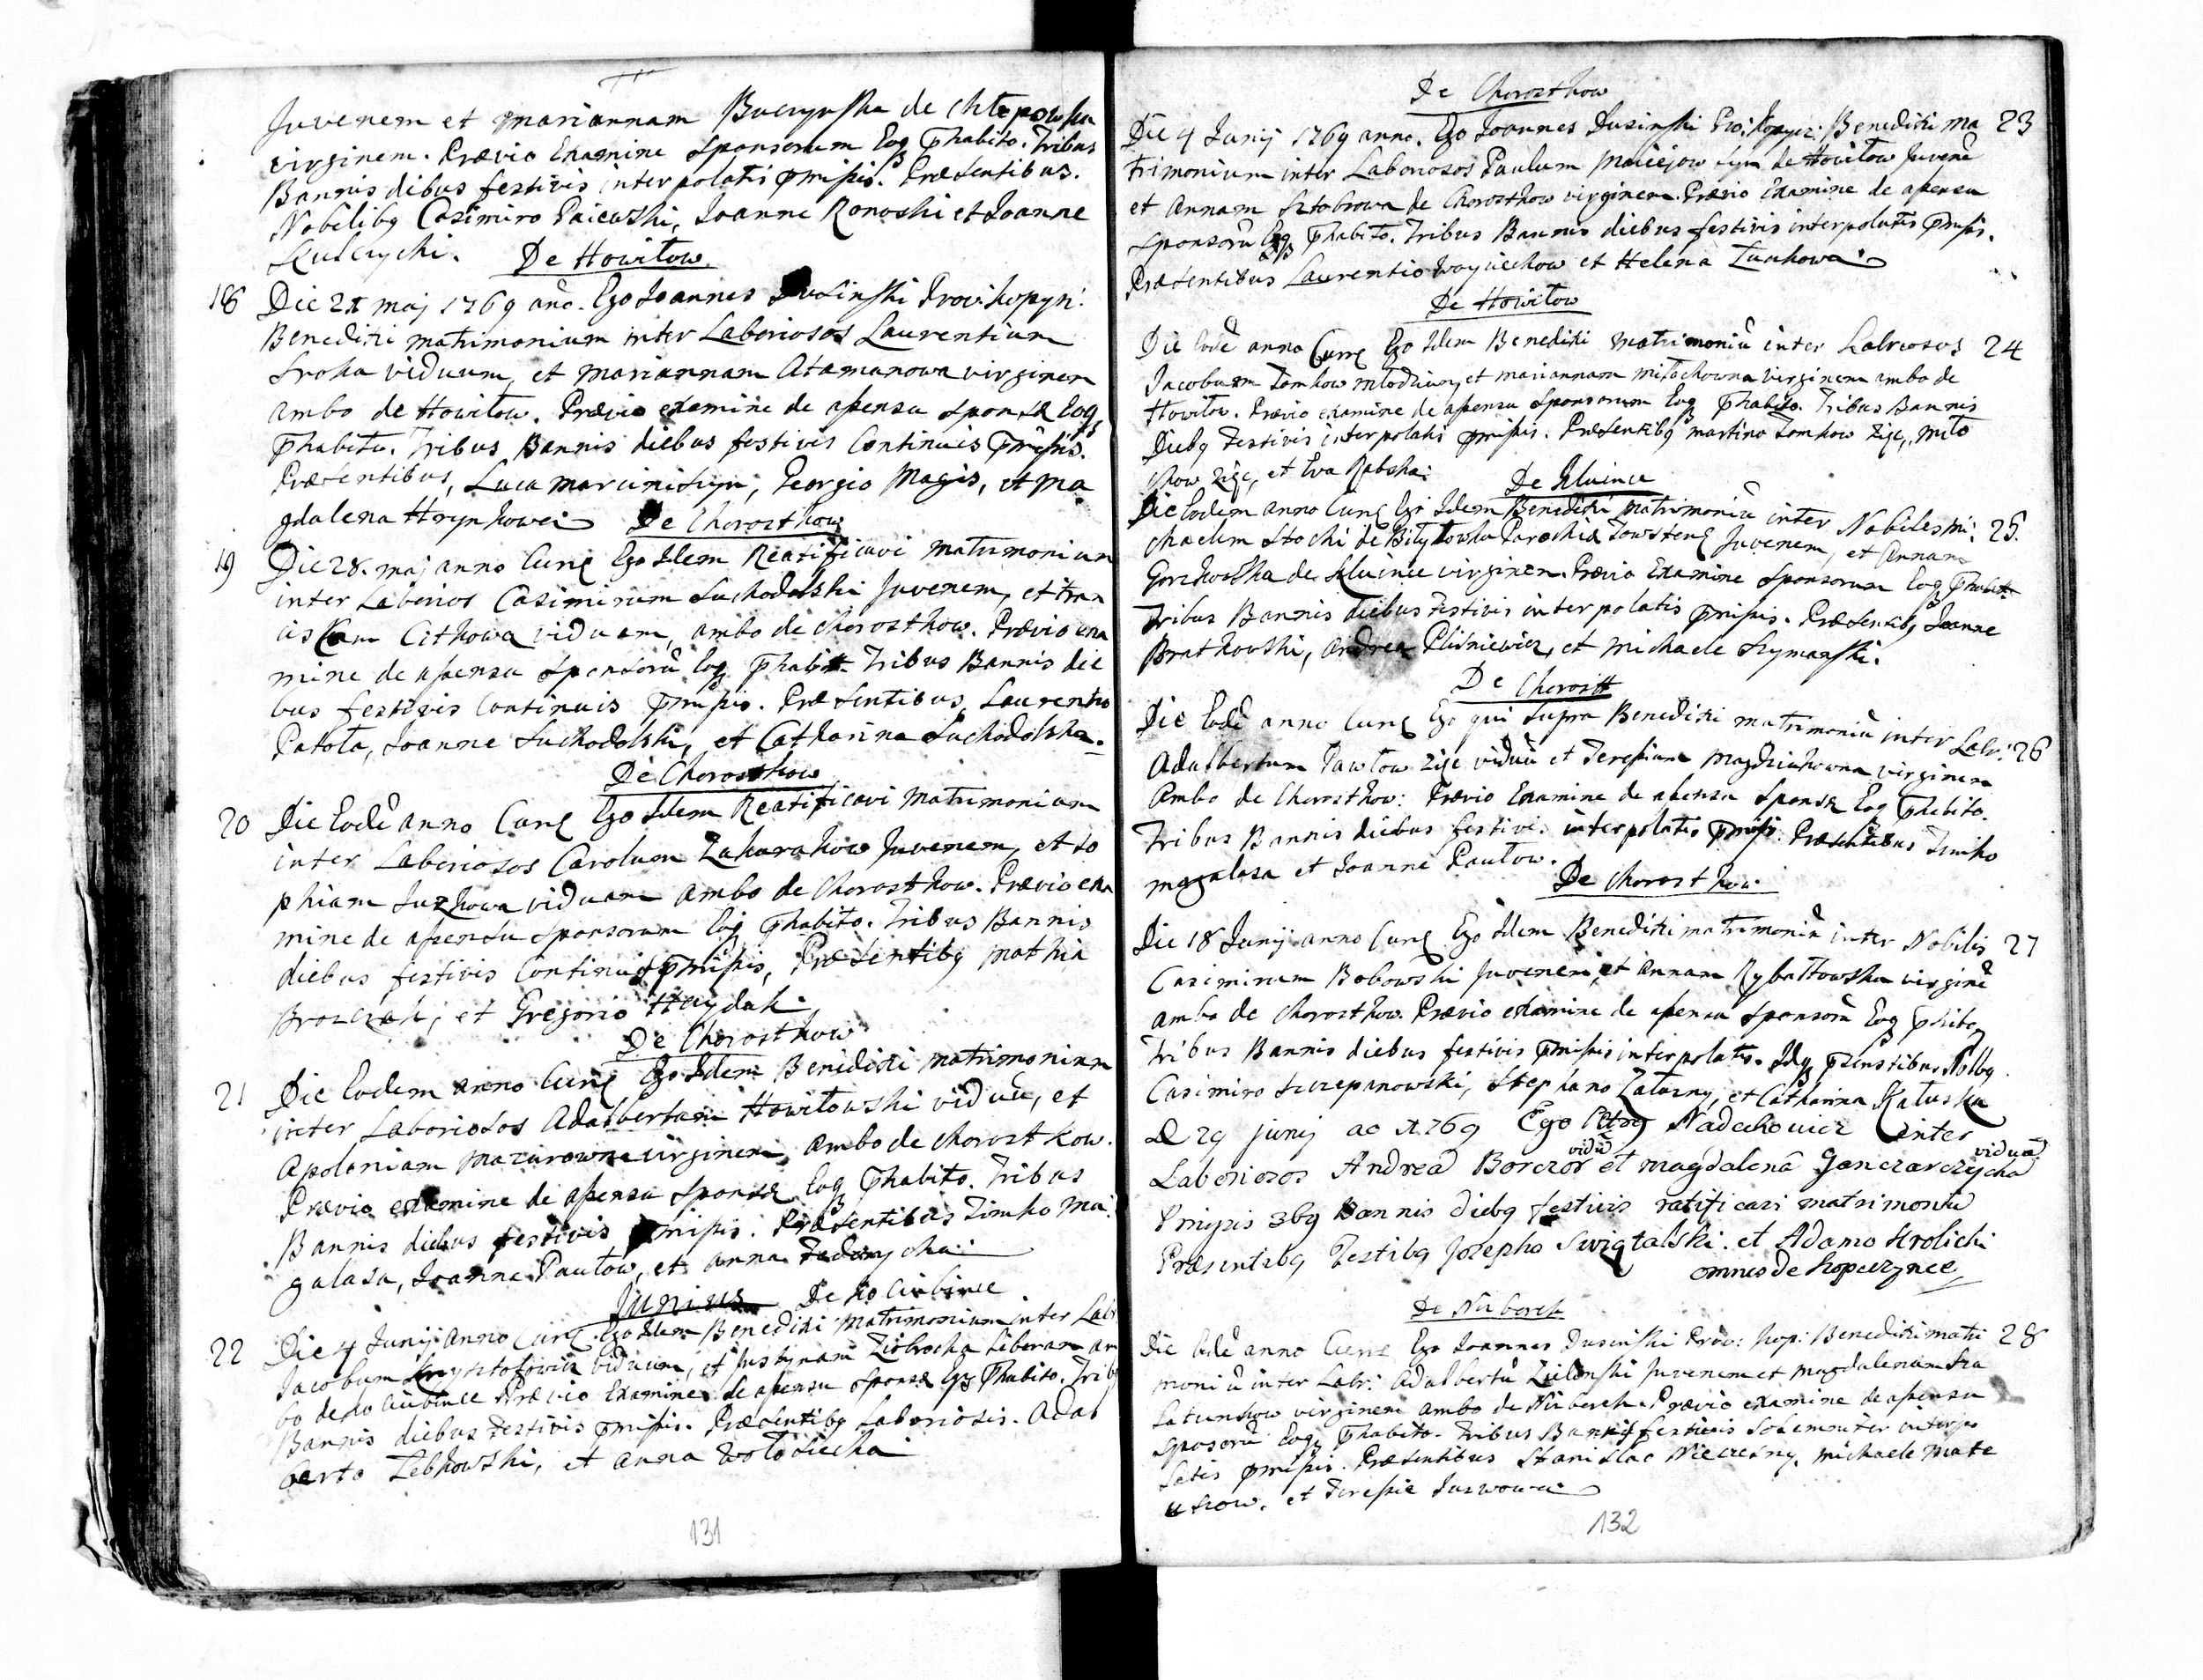 Juvenem et mariannam Buczynska de Chlepowka
virginem. Prævio Examine Sponsorum Eoq Phabito. Tribus
Bannis dibus festivis interpolatis Pmissis. Præsentibus.
Nobilibq Casimiro Paiewski, Joanne Ronoski et Joanne
Kulczychi. De Howiłow
18 Die 21 maj 1769 ano. Ego Joannes Dusinski Provi: kopyn:
Benedixi matrimonium inter Laboriosos Laurentium
Sroka viduum, et mariannam Atamanowa virginem
ambo de Howiłow. Prævio examine de assensu Sponsæ Eoq
Phabito. Tribus Bannis diebus festivis Continuis Pmissis.
Præsentibus, Luca Marciniszyn, Georgio Magis, et Ma
gdalena Hrynkowa De Chorosthow
19 Die 28. maj anno Curre Ego Idem Reatificavi matrimonium
inter Laborios Casimirum Suchodolski Juvenem, et Fran
ciscam Citkowa viduam, ambo de Chorosthow. Prævio exa
mine de assensu Sponsorũ Eoq Phabito Tribus Bannis die
bus festivis Continuis Pmissis. Præsentibus, Laurentio
Patoła, Joanne Suchodolski, et Catharina Suchodolska.
De Chorosthow
20 Die Eodẽ anno Curre Ego Idem Reatificavi Matrimonium
inter Laboriosos Carolum Zakarakow Juvenem, et So
phiam Juzkowa viduam ambo de Chorosthow. Prævio exa
mine de assensu Sponsorum Eoq Phabito. Tribus Bannis
diebus festivis Continuis Pmissis, Præsentibq Mathia
Broszczak, et Gregorio Haydak.
De Chorosthow
21 Die Eodem anno Curre Ego Idem Benedixi matrimonium
inter Laboriosos Adalbertum Howiłowski viduũ, et
Apoloniam Mazurowna virginem, ambo de Chorosthow.
Prævio examine de assensu Sponsæ Eoq Phabito. Tribus
Bannis diebus festivis Pmissis. Præsentibus Timko Ma:
galasa, Joanne Pautow, et Anna Fedczycha
Junius De Kociubince
22 Die 4 Junij anno Curre. Ego Idem Benedixi Matrimonium inter Labr
Jacobum Krysztofowicz viduum, et Justynam Ziobrocha liberam am
bo de Kociubince Prævio Examine de assensu Sponsæ Eoq Phabito. Trib
Bannis diebus Festivis Pmissis. Præsentibq Laboriosis. Adal
berto Zebkowski, et Anna Wołosiecka
131
De Chorosthow
Die 4 Junij 1769 anno. Ego Joannes Dusinski Pro: Kopycz: Benedixi Ma 23
trimonium inter Laboriosos Paulum Maciejow syn de Howiłow Juvenẽ
et Annam Sztobrowa de Chorosthow virginem. Prævio Examine de assensu
Sponsorũ Eoq Phabito. Tribus Bannis diebus festivis interpolatis Pmissis.
Præsentibus Laurentio Woyciechow et Helena Zankowa
De Howiłow
Die Eodẽ anno Curre Ego Idem Benedixi Matrimoniũ inter Labriosos 24
Jacobum Tomkow młodzian, et Mariannam Miłochowna virginem ambo de
Howiłow. Prævio examine de assensu Sponsorum Eoq Phabito. Tribus Bannis
Diebq Festivis interpolatis Pmissis. Præsentibq Martino Tomkow Zięc, Miło
chow Zięc, et Eva Rabska:
De Kluince
Die Eodem anno Curre Ego Idem Benedixi Matrimoniũ inter Nobiles Mi: 25.
chaelem Stocki de Biłyłowka Parochiæ Towstens Juvenem, et Annam
Gorzkowska de Kluince virginem. Prævio Examine Sponsorum Eoq Phabit
Tribus Bannis diebus Festivis interpolatis Pmissis. Præsentibq Joanne
Bratkowski, Andrea Plisniewicz, et Michaele Szymanski.
De Chorost
Die Eodẽ anno Curre Ego qui Supra Benedixi matrimoniũ inter Labr: 26
Adalbertum Pawłow Zięc viduũ et Teressiam Magdziakowna virginem
Ambo de Chorosthow: Prævio Examine de assensu Sponsæ Eoq Phabito.
Tribus Bannis diebus festivi. interpolatis Pmissi. Præsentibus Timko
Magalasa et Joanne Pautow.
De Chorosthow
Die 18 Junij anno Curre Ego Idem Benedixi matrimoniũ inter Nobilis 27
Casimirum Bobowski Juvenem, et Annam Rybałtowska virginẽ
ambo de Chorosthow. Prævio examine de assensu Sponsorũ Eoq Phito
Tribus Bannis diebus festivis Pmissis interpolatis. Idq Pzenstibus Nblbq
Casimiro Szczepanowski, Stephano Załuzny, et Catharina Katuska
D 29 Junij ao 1769 Ego Petrq Nadechowicz inter
Laboriosos Andreã Borczor viduũ et Magdalenã Ganczarczycha viduã
Pmissis 3bq Bannis diebq festivis ratificavi matrimoniũ
Præsentibq Testibq Josepho Swiątalski. et Adamo Krolicki
omnes de Kopeczynce
De Niżborek
Die Eodẽ anno Curre Ego Joannes Dusinski Prov: Kop: Benedixi matri 28
moniũ inter Labr: Adalbertũ Zielinski Juvenem et Magdalenam Sza
latunkow virginem ambo de Niżborek. Prævio examine de assensu
Sposorũ Eoq Phabito. Tribus Bannis festivis Solemniter interpo
latis Pmissis. Præsentibus Stanislao Niewczesny, Michaele Mate
uszow, et Teressie Juzwowa
132